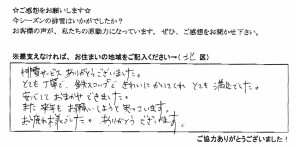 ☆ご感想をお願いします☆
今シーズンの排雪はいかがでしたか?
お客様の声が、私たちの原動力になっています。ぜひ、ご感想をお聞かせ下さい。
※差支えなければ、お住まいの地域をご記入ください→(北 区)
排雪サービスありがとうございました。
とても丁寧で、きれいにかいてくれ とても満足でした。
安心しておまかせできました。
また来年もお願いしようと思っています。
お疲れ様でした。ありがとうございます。
ご協力ありがとうございました!